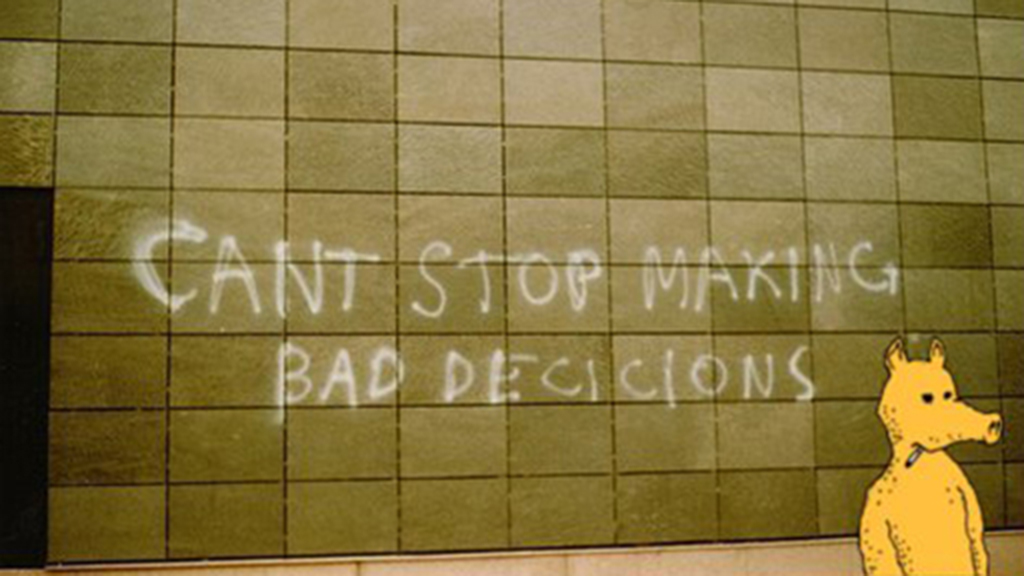 CANT STOP MAKING
BAD DECICIONS